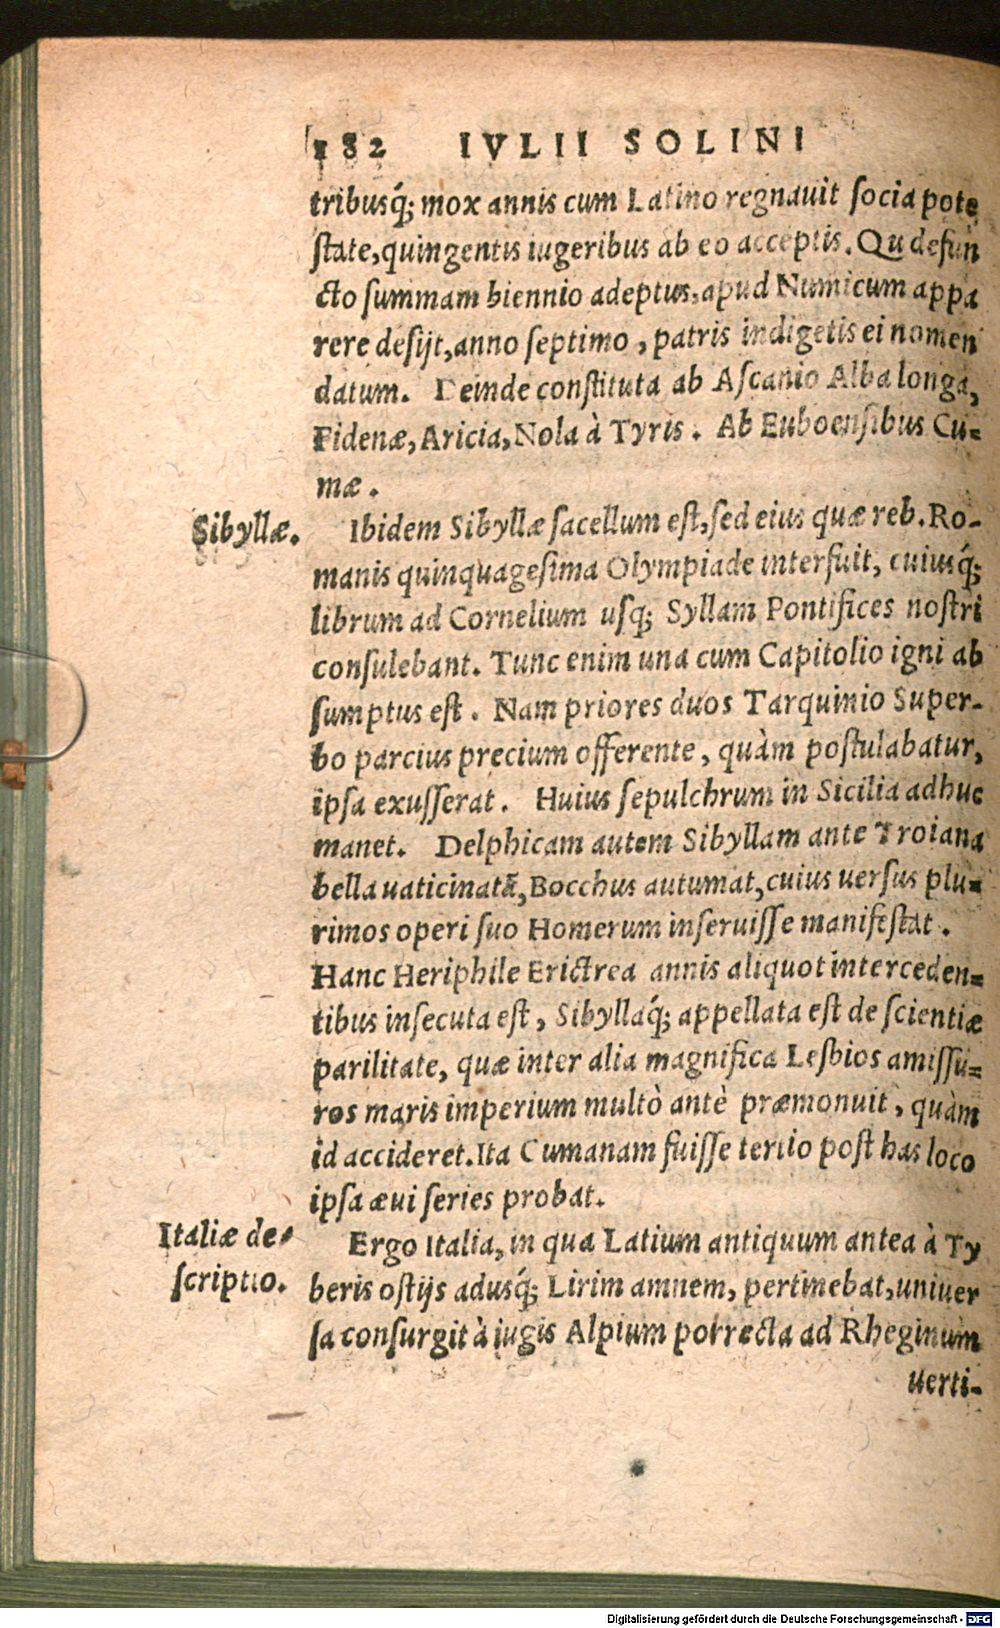 182 IVLII SOLINI
tribusq́; mox annis cum Latino regnauit ſocia pote
ſtate, quingentis iugeribus ab eo acceptis. Qu defun
cto ſummam biennio adeptus, apud Numicum appa
rere deſijt, anno ſeptimo, patris indigetis ei nomen
datum. Deinde conſtituta ab Aſcanio Alba longa,
Fidenæ, Aricia, Nola à Tyris. Ab Euboenſibus Cu-
mæ.
Sibyllæ.
Ibidem Sibyllæ ſacellum eſt, ſed eius quæ reb. Ro-
manis quinquageſima Olympiade interfuit, cuiusq́;
librum ad Cornelium uſq; Syllam Pontifices noſtri
conſulebant. Tunc enim una cum Capitolio igni ab
ſumptus eſt. Nam priores duos Tarquinio Super-
bo parcius precium offerente, quàm poſtulabatur,
ipſa exuſſerat. Huius ſepulchrum in Sicilia adhuc
manet. Delphicam autem Sibyllam ante Troiana
bella uaticinatã, Bocchus autumat, cuius uerſus plu-
rimos operi ſuo Homerum inſeruiſſe manifeſtat.
Hanc Heriphile Erictrea annis aliquot interceden-
tibus inſecuta eſt, Sibyllaq́; appellata eſt de ſcientiæ
parilitate, quæ inter alia magnifica Leſbios amiſſu-
ros maris imperium multò antè præmonuit, quàm
id accideret. Ita Cumanam fuiſſe tertio poſt has loco
ipſa æui ſeries probat.
Italiæ de-
ſcriptio.
Ergo Italia, in qua Latium antiquum antea à Ty
beris oſtijs adusq́; Lirim amnem, pertinebat, uniuer
ſa conſurgit à iugis Alpium porrecta ad Rheginum
uerti-
Digitalisierung gefördert durch die Deutsche Forschungsgemeinschaft - DFG